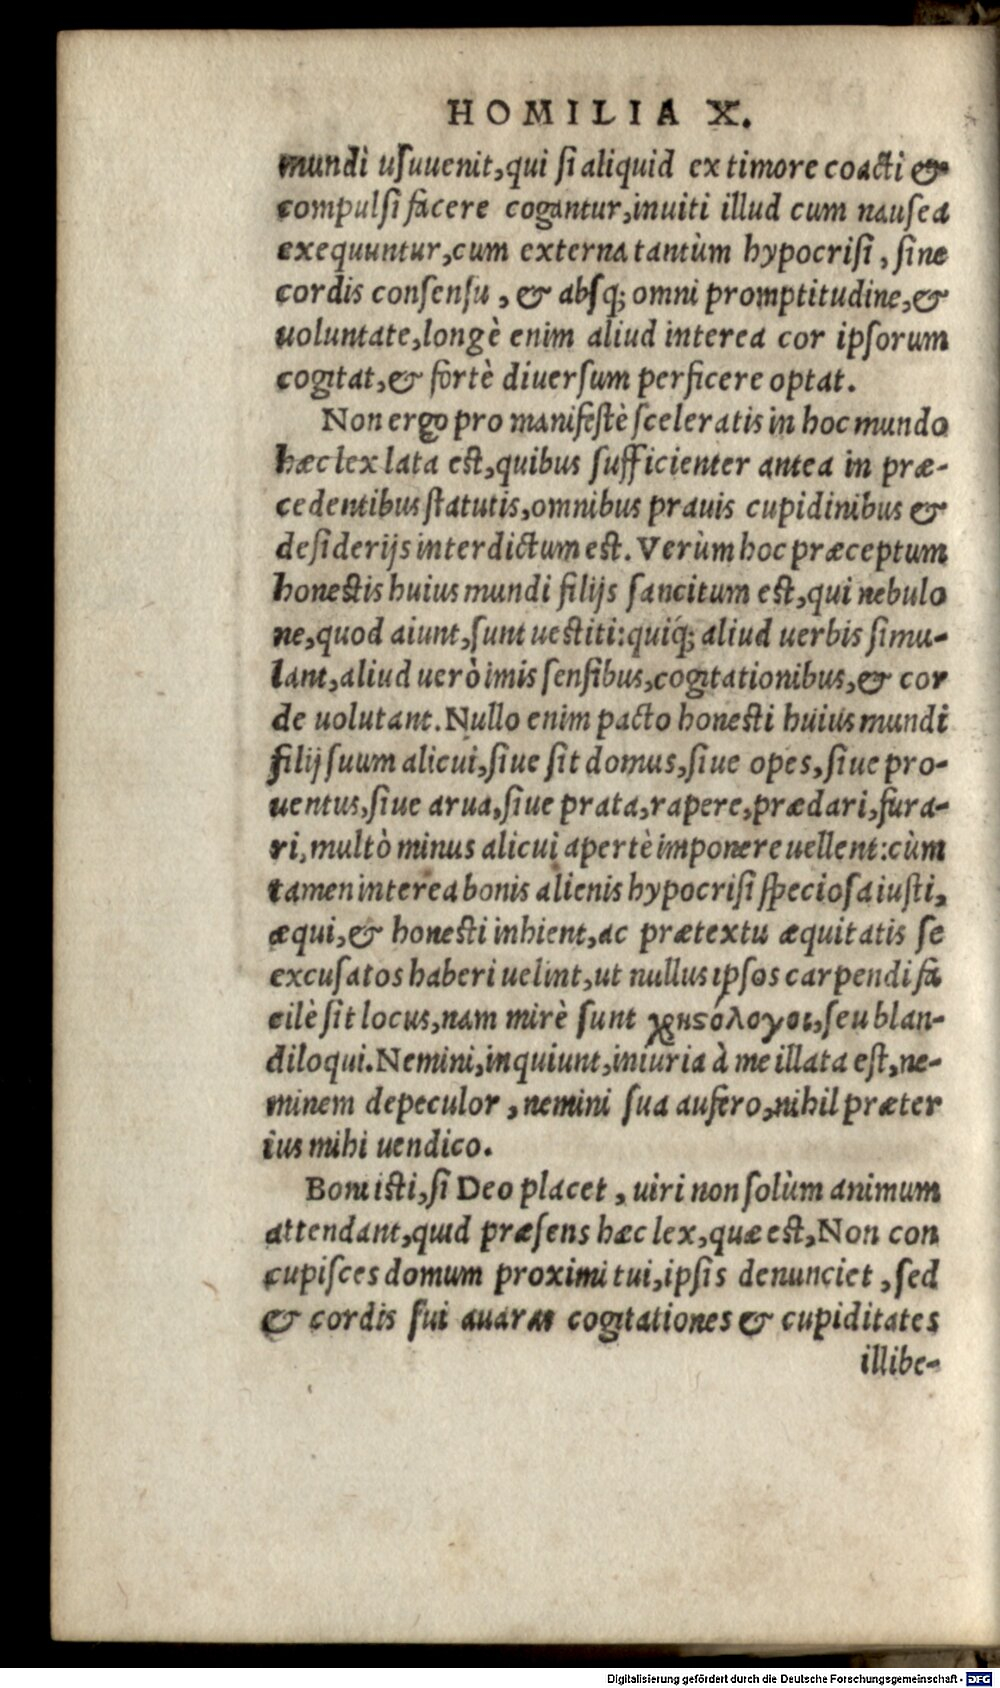 HOMILIA X.
mundi uſuuenit, qui ſi aliquid ex timore coacti &
compulſi facere cogantur, inuiti illud cum nauſea
exequuntur, cum externa tantùm hypocriſi, ſine
cordis conſenſu, & abſq; omni promptitudine, &
uoluntate, longè enim aliud interea cor ipſorum
cogitat, & fortè diuerſum perficere optat.
Non ergo pro manifeſtè ſceleratis in hoc mundo
hæc lex lata eſt, quibus ſufficienter antea in præ-
cedentibus ſtatutis, omnibus prauis cupidinibus &
deſiderijs interdictum eſt. Verùm hoc præceptum
honeſtis huius mundi filijs ſancitum eſt, qui nebulo
ne, quod aiunt, ſunt ueſtiti: quiq; aliud uerbis ſimu-
lant, aliud uerò imis ſenſibus, cogitationibus, & cor
de uolutant. Nullo enim pacto honeſti huius mundi
filij ſuum alicui, ſiue ſit domus, ſiue opes, ſiue pro-
uentus, ſiue arua, ſiue prata, rapere, prædari, fura-
ri, multò minus alicui apertè imponere uellent: cùm
tamen interea bonis alienis hypocriſi ſpecioſa iuſti,
æqui, & honeſti inhient, ac prætextu æquitatis ſe
excuſatos haberi uelint, ut nullus ipſos carpendi fa
cilè ſit locus, nam mirè ſunt χρηϛόλογοι, ſeu blan-
diloqui. Nemini, inquiunt, iniuria à me illata eſt, ne-
minem depeculor, nemini ſua aufero, nihil præter
ius mihi uendico.
Boni iſti, ſi Deo placet, uiri non ſolùm animum
attendant, quid præſens hæc lex, quæ eſt, Non con
cupiſces domum proximi tui, ipſis denunciet, ſed
& cordis ſui auaras cogitationes & cupiditates
illibe-
Digitalisierung gefördert durch die Deutsche Forschungsgemeinschaft - DFG